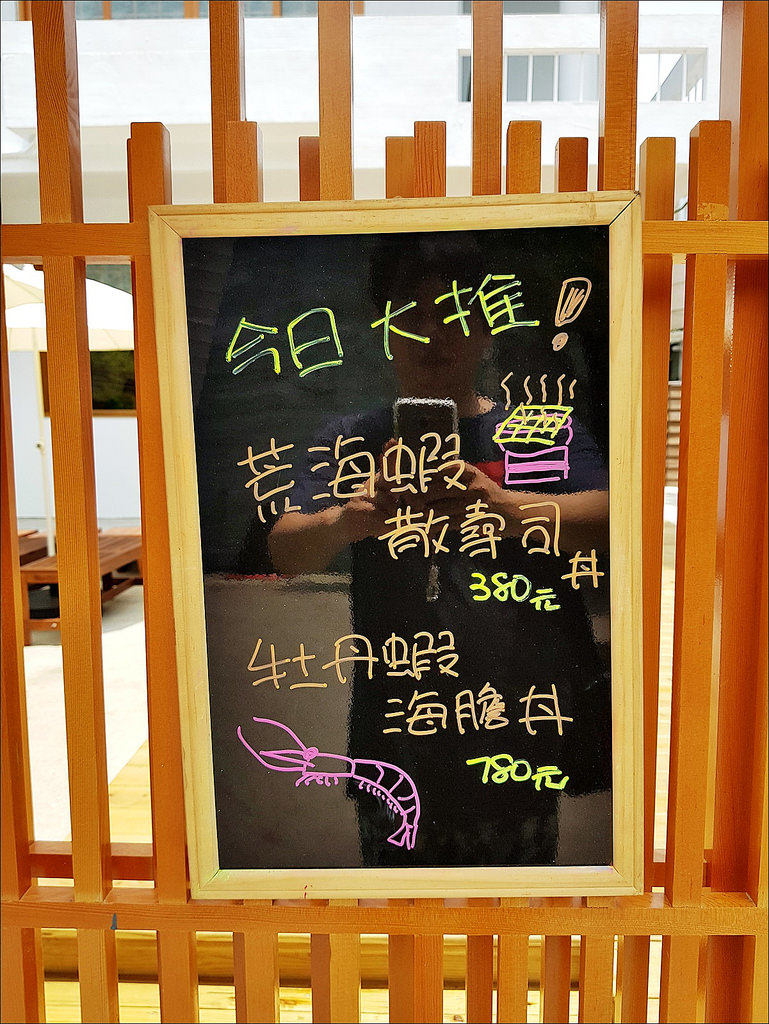 今日大推!
荒海蝦
散壽司丼
380元
牡丹蝦
海膽丼
780元